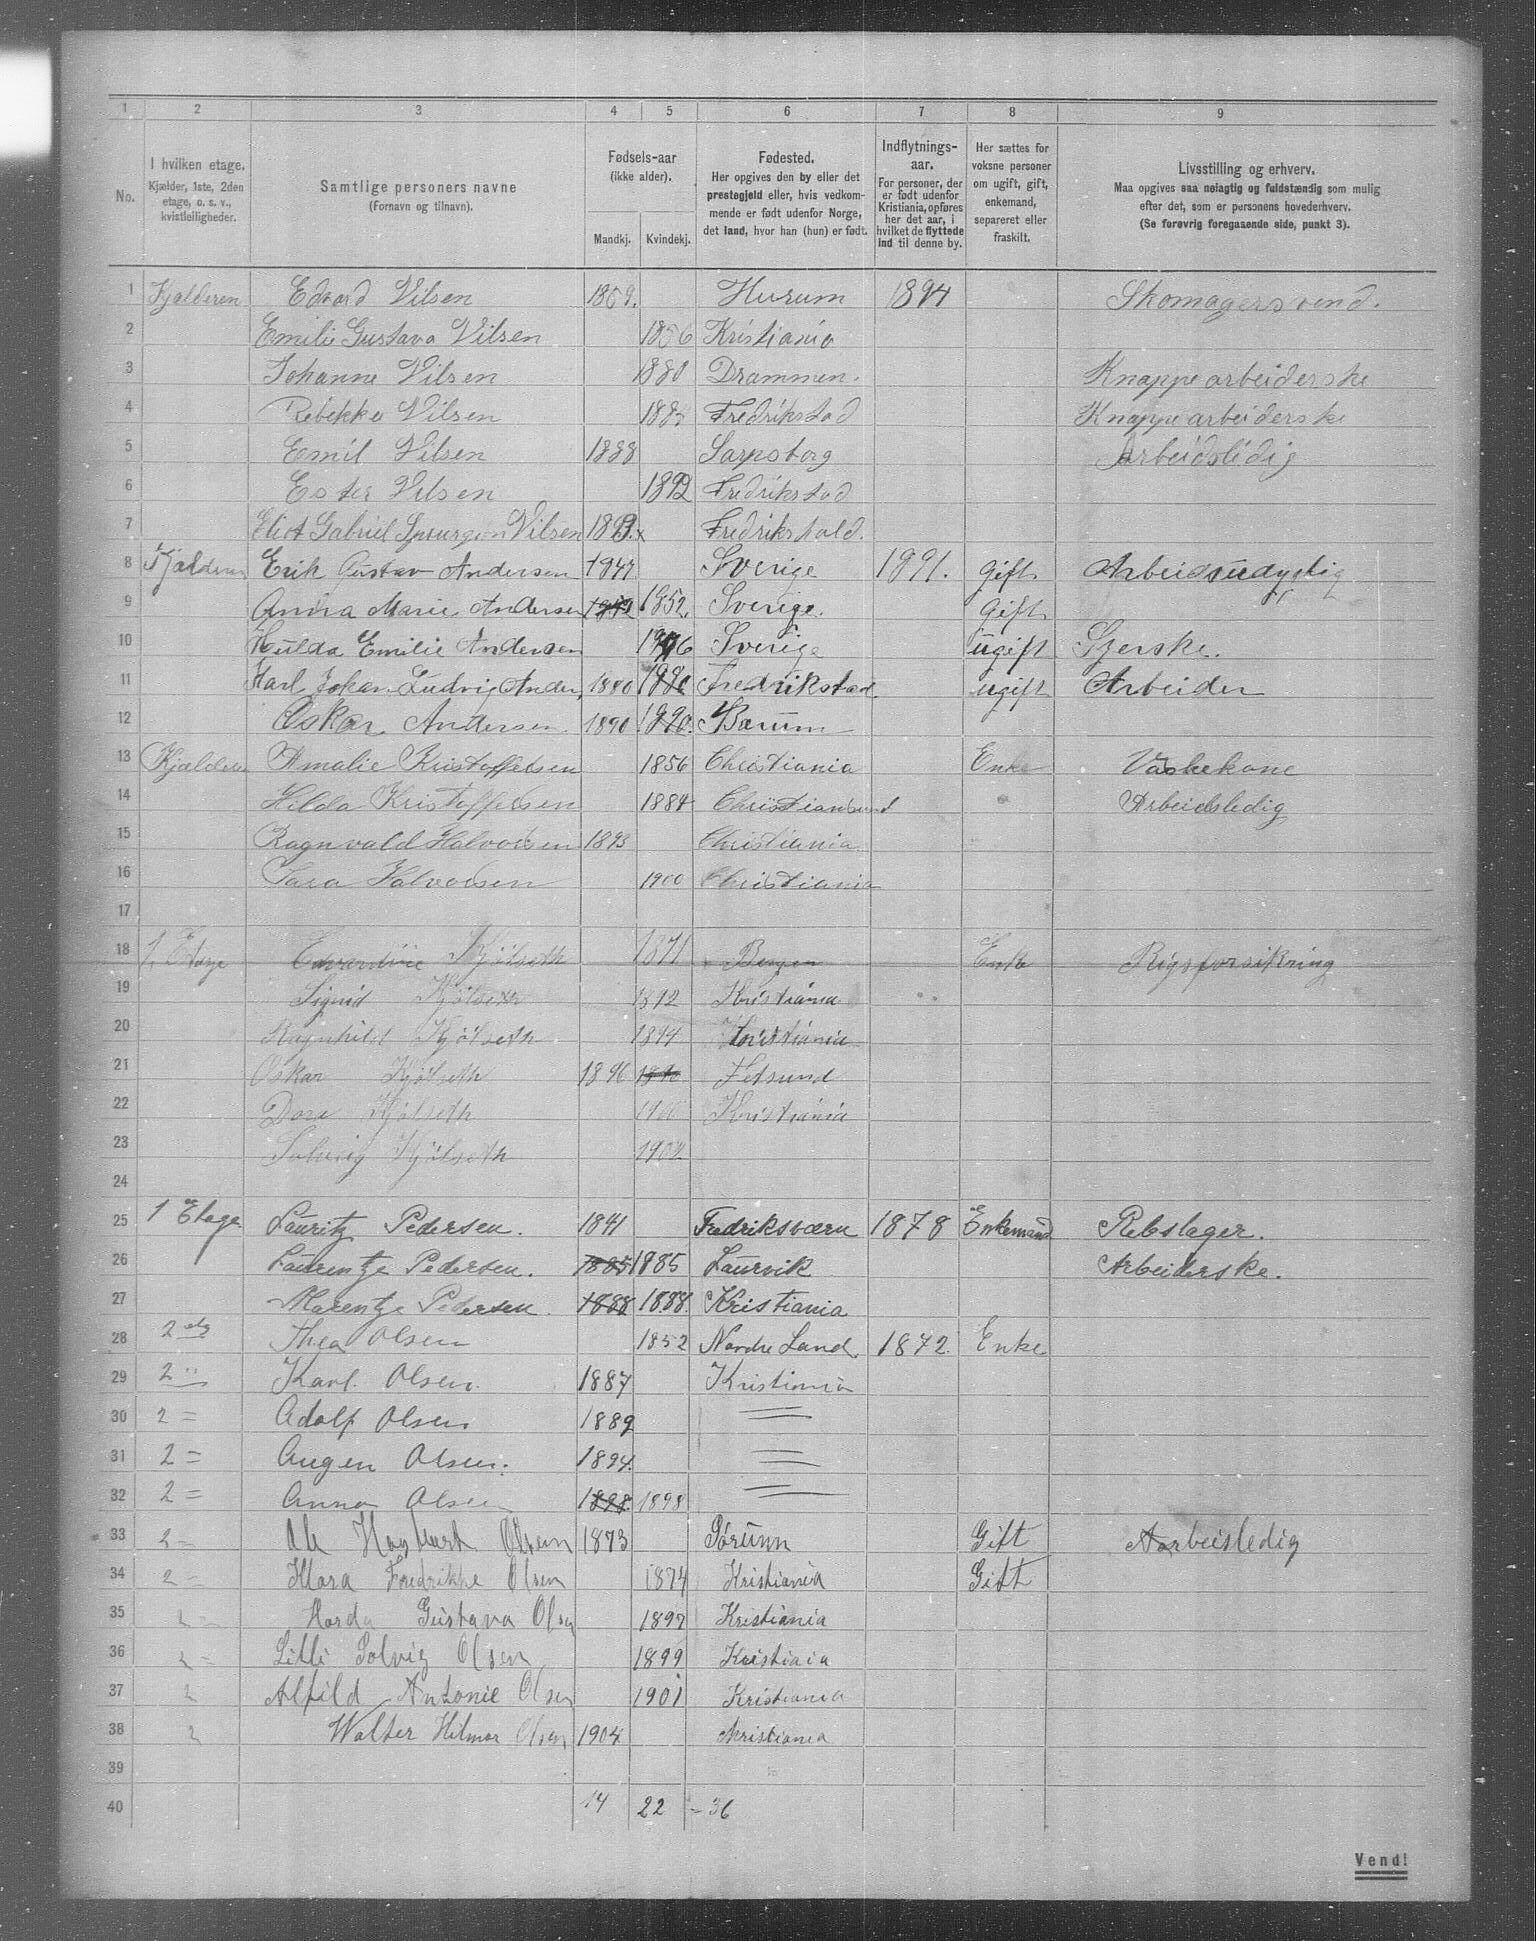 1 2 3 4 5 6 7 8 9
No.
I hvilken etage.
Kjælder, 1ste, 2den
etage, o. s. v.,
kvistleiligheder.
Samtlige personers navne
(Fornavn og tilnavn).
Fødsels-aar
(ikke alder).
Mandkj. Kvindekj.
Fødested.
Her opgives den by eller det
prestegjeld eller, hvis vedkom-
mende er født udenfor Norge,
det land, hvor han (hun) er født.
Indflytnings-
aar.
For personer, der
er født udenfor
Kristiania, opføres
her det aar, i
hvilket de flyttede
ind til denne by.
Her sættes for
voksne personer
om ugift, gift,
enkemand,
separeret eller
fraskilt.
Livsstilling og erhverv.
Maa opgives saa nøiagtig og fuldstændig som mulig
efter det, som er personens hovederhverv.
(Se forøvrig foregaaende side, punkt 3).
1 Kjalderen Edvard Nilsen 1859. Hurum 1894 Skomagersvend.
2 Emilie Gustava Nilsen 1856 Kristiania
3 Johanne Nilsen 1880 Drammen. Knappearbeiderske
4 Rebekka Nilsen Fredrikstad Knappearbeiderske
5 Emil Nilsen 1888 Sarpsborg Arbeidslidig
6 Ester Nilsen 1892 Fredrikstad
7 Eliot Gabriel Spurgeon Nilsen Fredrikshald.
8 Kjælderen Erik Gustav Andersen 1847 Sverige 1891. gift Arbeidsudygtig
9 Andra Marie Andersen 1852 1852. Sverige. gift
10 Hulda Emilie Andersen Sverige ugift Syerske.
11 Karl Johan Ludvig Ander, 1880 1880 Fredrikstad ugift Arbeider
12 Oskar Andersen. 1890 1890. Bærum
13 Kjælderen Amalie Kristoffersen 1856 Christiania Enke Vaskekone
14 Hilda Kristoffersen 1884 Christiansund Arbeidsledig
15 Ragnvald Halvorsen 1893 Christiania
16 Sara Halvorsen 1900 Christiania
17
18 1. Etage Edvardine Kjölseth 1871 Bergen Enke Rigsforsikring
19 Sigrid Kjölseth 1892 Kristiania
20 Ragnhild Kjölseth 1894 Kristiania
21 Oskar Kjölseth 1896 Fetsund
22 Dora Kjölseth 1900 Kristiania
23 Solveig Kjölseth 1902
24
25 1 Etage Lauritz Pedersen. 1841 Fredriksværn 1878 Enkemand Rebslager.
26 Laurentze Pedersen. 1885 1885 Laurvik Arbeiderske.
27 Marentze Pedersen. 1888 1888. Kristiania
28 2 etg Thea Olsen 1852 Nordre Land. 1872. Enke
29 2 " Karl. Olsen. 1887 Kristiania
30 2 = Adolf Olsen 1889 =
31 2 = Augen Olsen. 1894. =
32 2 = Anna Olsen 1898 1898 =
33 2 = Ole Hagbart Olsen 1873 Sörum Gift Aarbeisledig
34 2 = Klara Fredrikke Olsen 1874 Kristiania Gift
35 2 = Harda Gustava Olsen 1897 Kristiania
36 2 = Lilli Solvig Olsen 1899 Kristiaia
37 2 Alfild Antonie Olsen 1901 Kristiania
38 2 Walter Hilmar Olsen 1904 Kristiania
39
40 14 22 = 36
Vend!